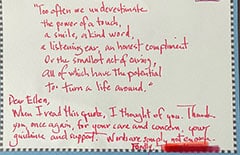 "Too often we underestimate
the power of a touch,
a smile, a kind word,
a listening ear, an honest compliment
Or the smallest act of caring,
all of which have the potential
To turn a life around."
Dear Ellen,
When I read this quote, I thought of you. Thank
you once again, for your care and concern, your
guidance and support. Words are simply not enough.